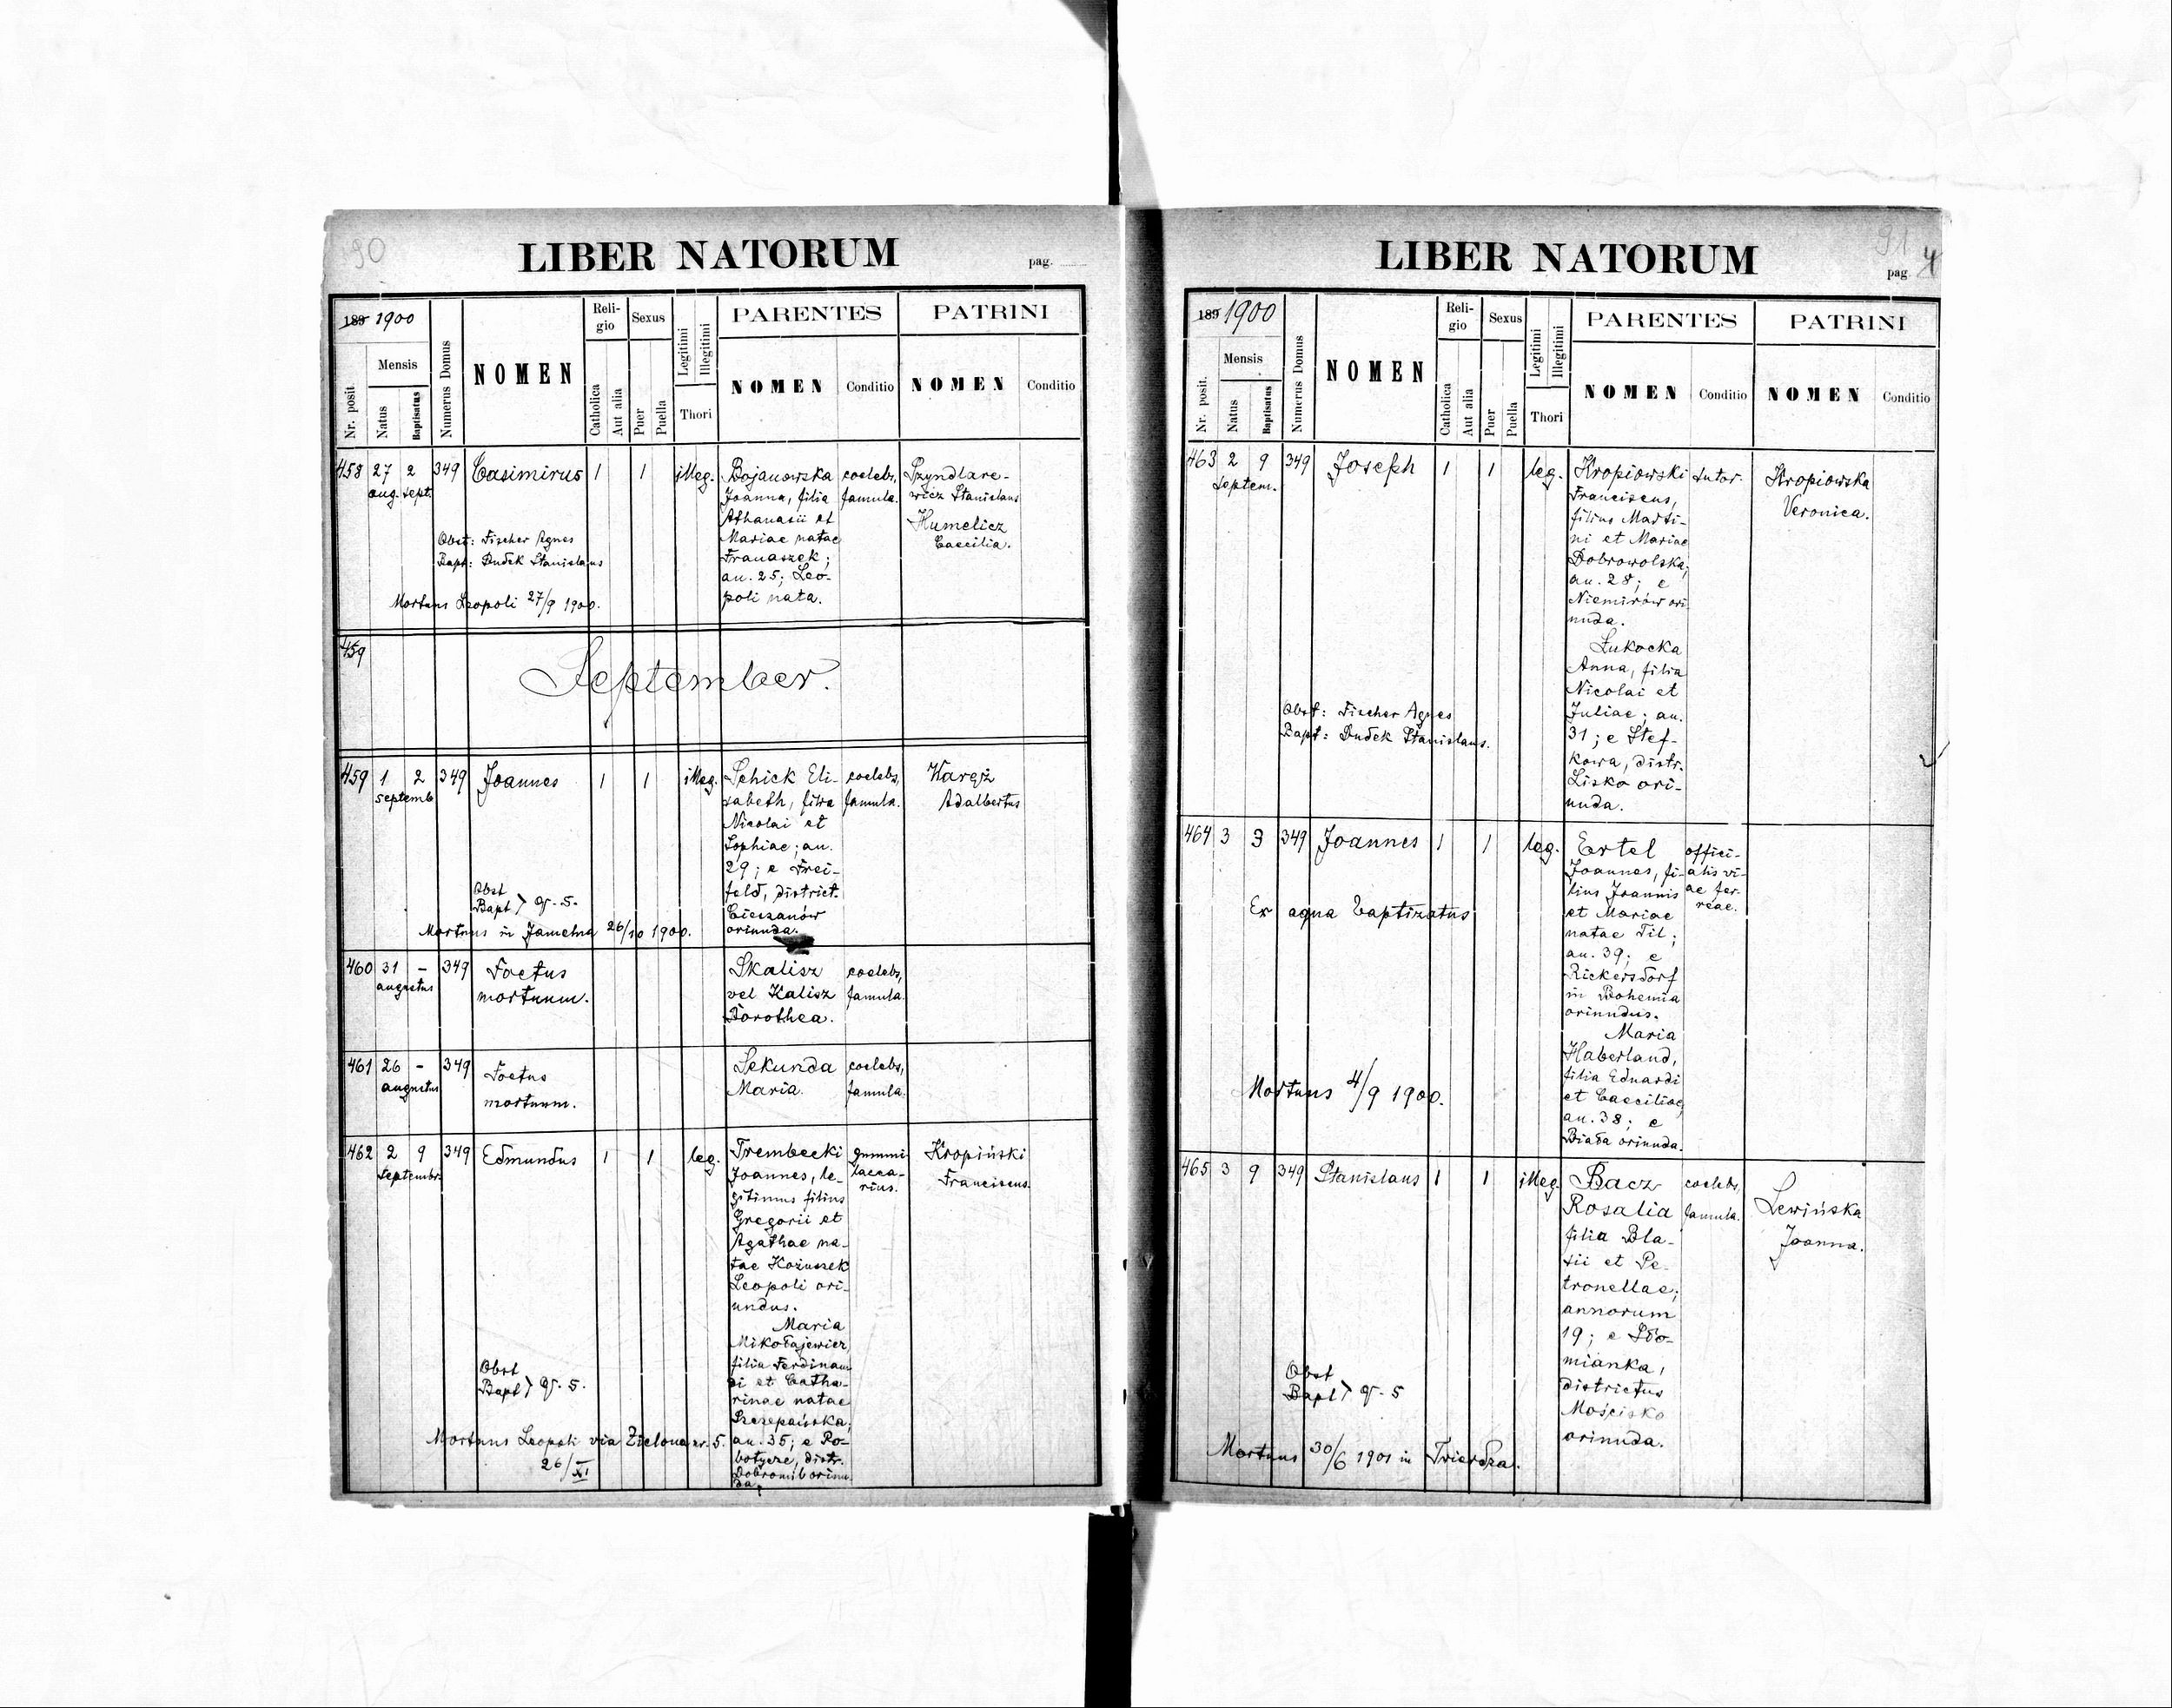 90
LIBER NATORUM
pag.
189 1900
Nr. posit.
Mensis
Natus
Baptisatus
Numerus Domus
NOMEN
Reli-
gio
Catholica
Aut alia
Sexus
Puer
Puella
Legitimi
Illegitimi
Thori
PARENTES
NOMEN
Conditio
PATRINI
NOMEN
Conditio
458 27 2 349 Casimirus 1 1 illeg.
aug. sept.
Obst: Fischer Agnes
Bapt: Dudek Stanislaus
Mortuus Leopoli 27/9 1900.
Bojanowska
Joanna, filia
Athanasii et
Mariae natae
Franaszek;
an. 25; Leo-
poli nata.
coelebs,
famula.
Szyndlare-
wicz Stanislaus
Humelicz
Caecilia.
459
September.
459 1 2 349 Joannes 1 1 illeg.
septemb
Obst
Bapt } q. s.
Mortuus in Jamelna 26/10 1900.
Schick Eli-
sabeth, filia
Nicolai et
Sophiae; an.
29; e Frei-
feld, district.
Cieszanów
oriunda.
coelebs,
famula.
Waręż
Adalbertus
460 31 - 349 Foetus
augustus
mortuum.
Skalisz
vel Kalisz
Dorothea.
coelebs,
famula.
461 26 - 349 Foetus
augustus
mortuum.
Sekunda
Maria.
coelebs,
famula.
462 2 9 349 Edmundus 1 1 leg.
septembr.
Obst
Bapt } q. s.
Mortuus Leopoli via Zielona nr. 5.
26/XI
Trembecki
Joannes, le-
gitimus filius
Gregorii et
Agathae na-
tae Kożuszek
Leopoli ori-
undus.
Maria
Mikołajewicz,
filia Ferdinan
di et Catha-
rinae natae
Szczepańska;
an. 35; e Ro-
botycze, distr.
Dobromil oriun
da.
gummi
lacca-
rius.
Kropiński
Franciscus.
91
LIBER NATORUM
pag.
189 1900
Nr. posit.
Mensis
Natus
Baptisatus
Numerus Domus
NOMEN
Reli-
gio
Catholica
Aut alia
Sexus
Puer
Puella
Legitimi
Illegitimi
Thori
PARENTES
NOMEN
Conditio
PATRINI
NOMEN
Conditio
463 2 9 349 Joseph 1 1 leg.
septem.
Obst: Fischer Agnes
Bapt: Dudek Stanislaus.
Kropiowski
Franciscus,
filius Marti-
ni et Mariae
Dobrowolska;
an. 28; e
Niemirów ori
nuda.
Łukocka
Anna, filia
Nicolai et
Juliae; an.
31; e Stef-
kowa, distr.
Lisko ori-
unda.
sutor.
Kropiowska
Veronica.
464 3 3 349 Joannes 1 1 leg.
Ex aqua baptizatus
Mortuus 4/9 1900.
Ertel
Joannes, fi-
lius Joannis
et Mariae
natae Til;
an. 39; e
Rickersdorf
in Bohemia
oriundus.
Maria
Haberland,
filia Eduardi
et Caeciliae,
an. 38; e
Biała oriunda.
offici-
alis vi-
ae fer-
reae.
465 3 9 349 Stanislaus 1 1 illeg.
Obst
Bapt } q. s
Mortuus 30/6 1901 in
Bacz
Rosalia
filia Bla-
sii et Pe-
tronellae;
annorum
19; e Sło-
mianka,
districtus
Mościsko
oriunda.
coelebs,
famula.
Lewińska
Joanna.